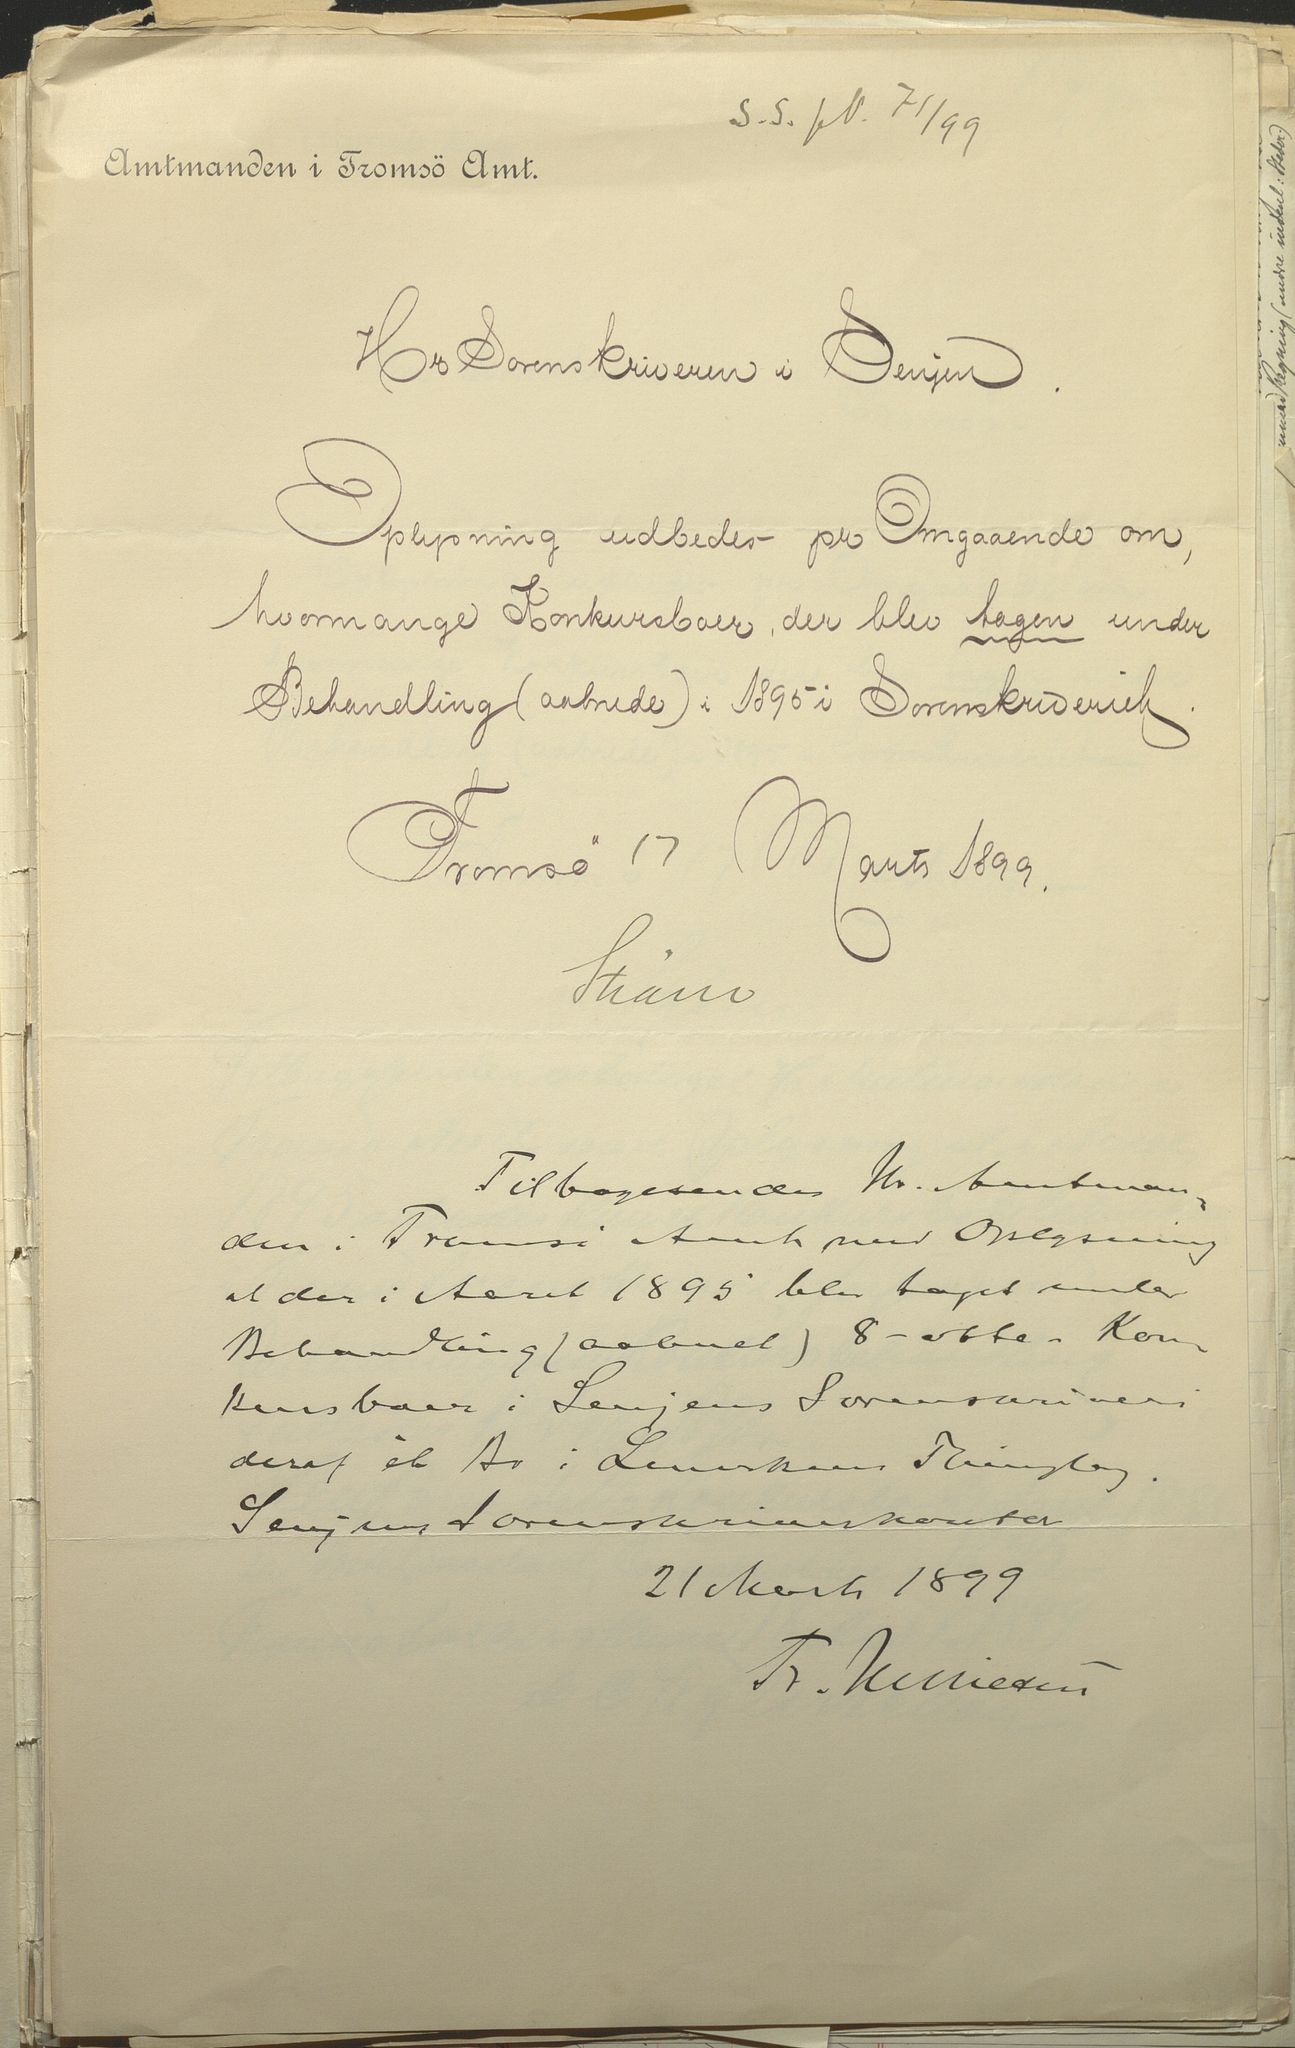 S.S. pN. 71/99
Amtmanden i Tromsö Amt.
Hr Sorenskriveren i Senjen.
Oplysning udbedes pr Omgaaende om,
hvormange Konkursboer, der blev tagen under
Behandling (aabnede) i 1895 i Sorenskriveriet.
Tromsö 17 Marts 1899.
Ström
Tilbagesendes Hr. Amtman-
den i Tromsö Amt med Oplysning
at der i Aaret 1895 blev taget under
Behandling (aabnet) 8 - otte - Kon-
kursboer i Senjens Sorenskriveri
deraf ét Bo i Lenvikens Thinglag.
Senjens Sorenskriverkontor
21 Marts 1899
Fr.